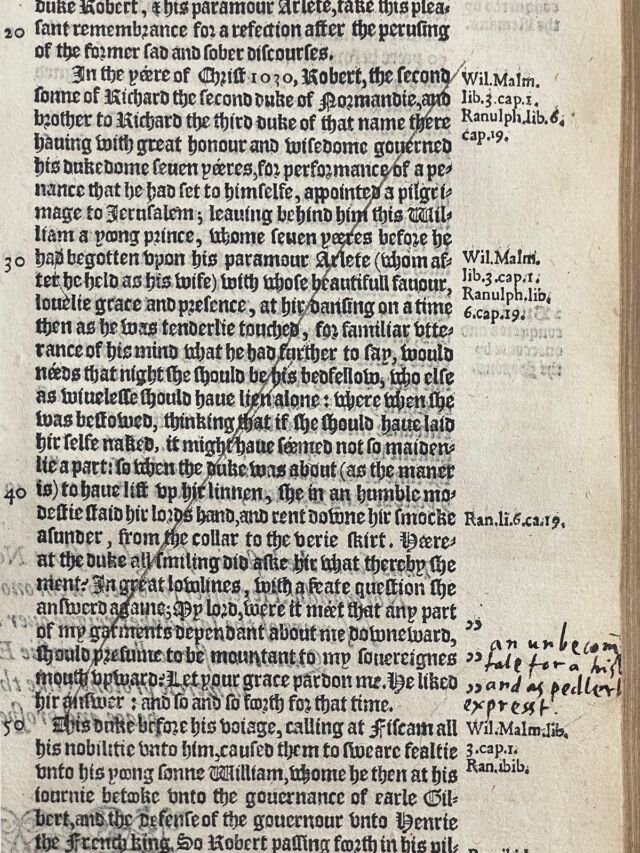 duke Robert, & his paramour Arlete, take this plea-
20 sant remembrance for a refection after the perusing
of the former sad and sober discourses.
In the yéere of Christ 1030, Robert, the second
sonne of Richard the second duke of Normandie, and
brother to Richard the third duke of that name there
hauing with great honour and wisedome gouerned
his dukedome seuen yéeres, for performance of a pe-
nance that he had set to himselfe, appointed a pilgri-
mage to Jerusalem; leauing behind him this Wil-
liam a yoong prince, whome seuen yéeres before he
30 had begotten vpon his paramour Arlete (whom af-
ter he held as his wife) with whose beautifull fauour,
louelie grace and presence, at hir dansing on a time
then as he was tenderlie touched, for familiar vtte-
rance of his mind what he had further to say, would
néeds that night she should be his bedfellow, who else
as wiuelesse should haue lien alone: where when she
was bestowed, thinking that if she should haue laid
hir selfe naked, it might haue séemed not so maiden-
lie a part: so when the duke was about (as the maner
40 is) to haue lift vp hir linnen, she in an humble mo-
destie staid hir lords hand, and rent downe hir smocke
asunder, from the collar to the verie skirt. Héere-
at the duke all smiling did aske hir what thereby she
ment? In great lowlines, with a feate question she
answerd againe; My lord, were it méet that any part
of my garments dependant about me downeward,
should presume to be mountant to my souereignes
mouth vpward? Let your grace pardon me. He liked
hir answer: and so and so foorth for that time.
50 This duke before his voiage, calling at Fiscam all
his nobilitie vnto him, caused them to sweare fealtie
vnto his yoong sonne William, whome he then at his
iournie betooke vnto the gouernance of earle Gil-
bert, and the defense of the gouernour vnto Henrie
the French king. So Robert passing foorth in his pil-
Wil. Malm.
lib.3.cap.1.
Ranulph.lib.6.
cap.19.
Wil.Malm.
lib.3.cap.1.
Ranulph.lib.
6.cap.19.
Ran.li.6.ca.19.
”
an unbecom
” tale for a hist
” and as pedlerl
expresst.
Wil.Malm.lib.
3.cap.1.
Ran.ibib.